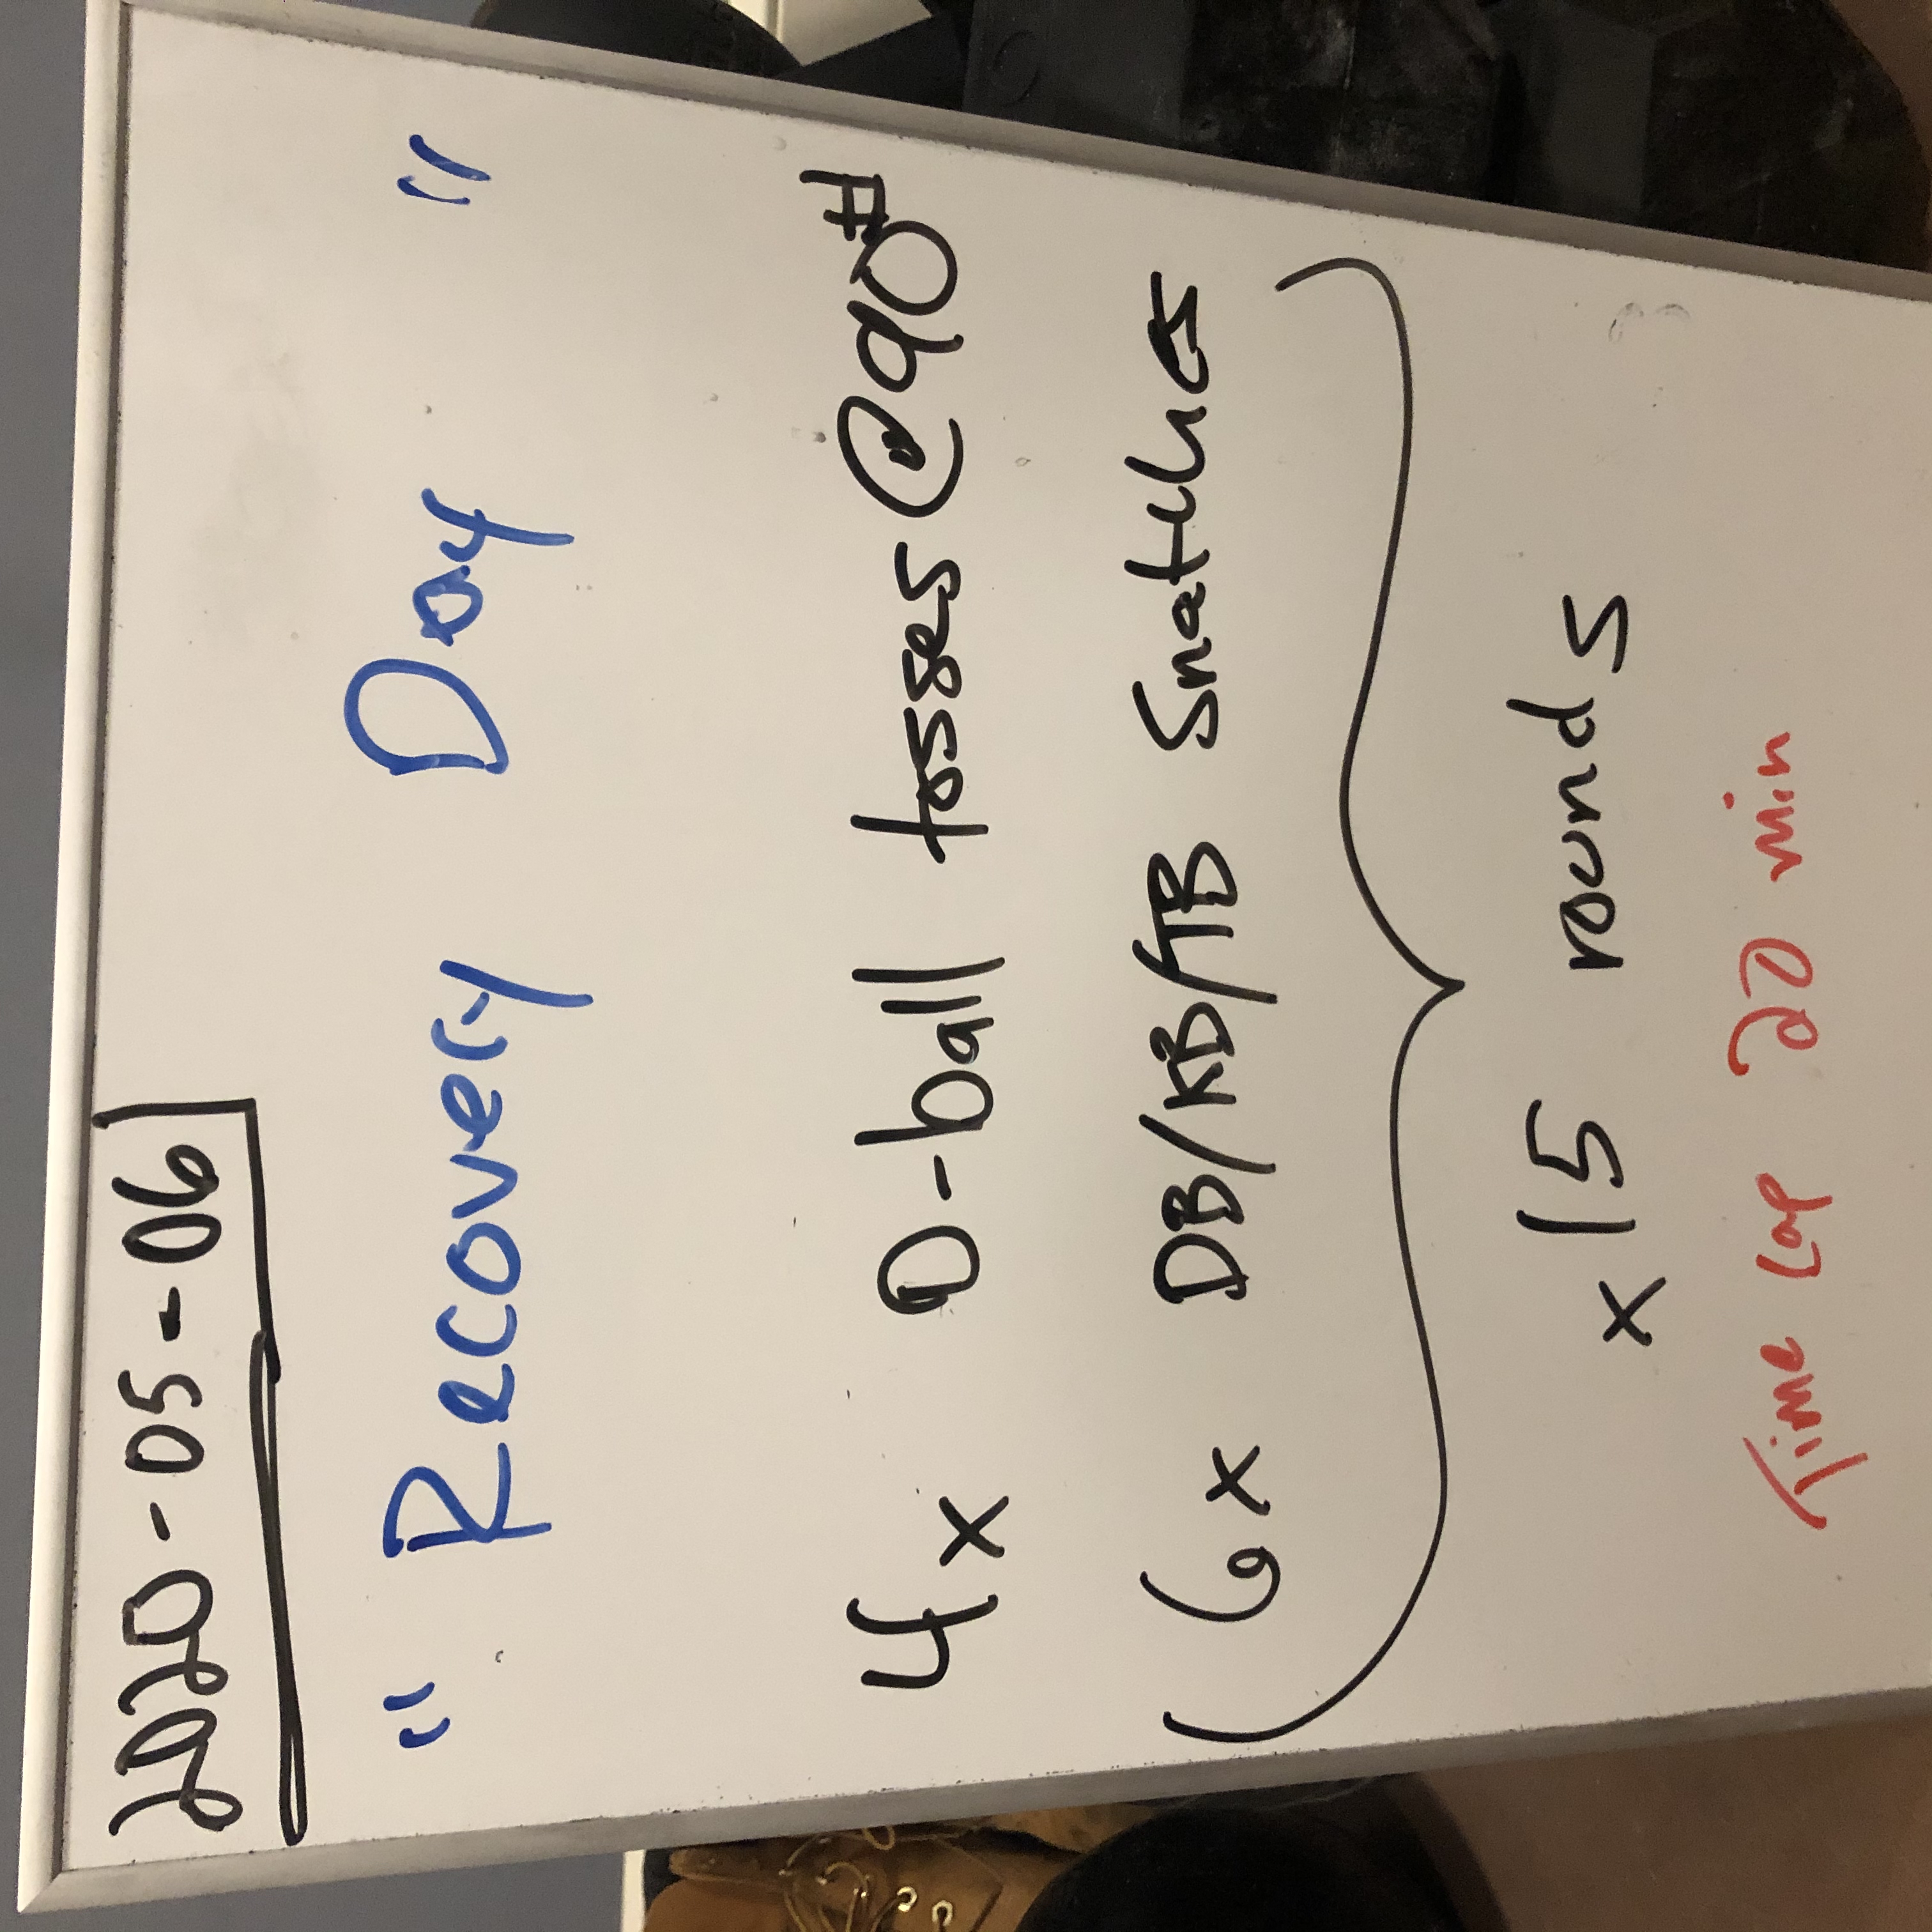 2020-05-06
"Recovery Day"
4x D-ball tosses @90#
6x DB/KB/TB Snatches
x15 rounds
Time Cap 20 min